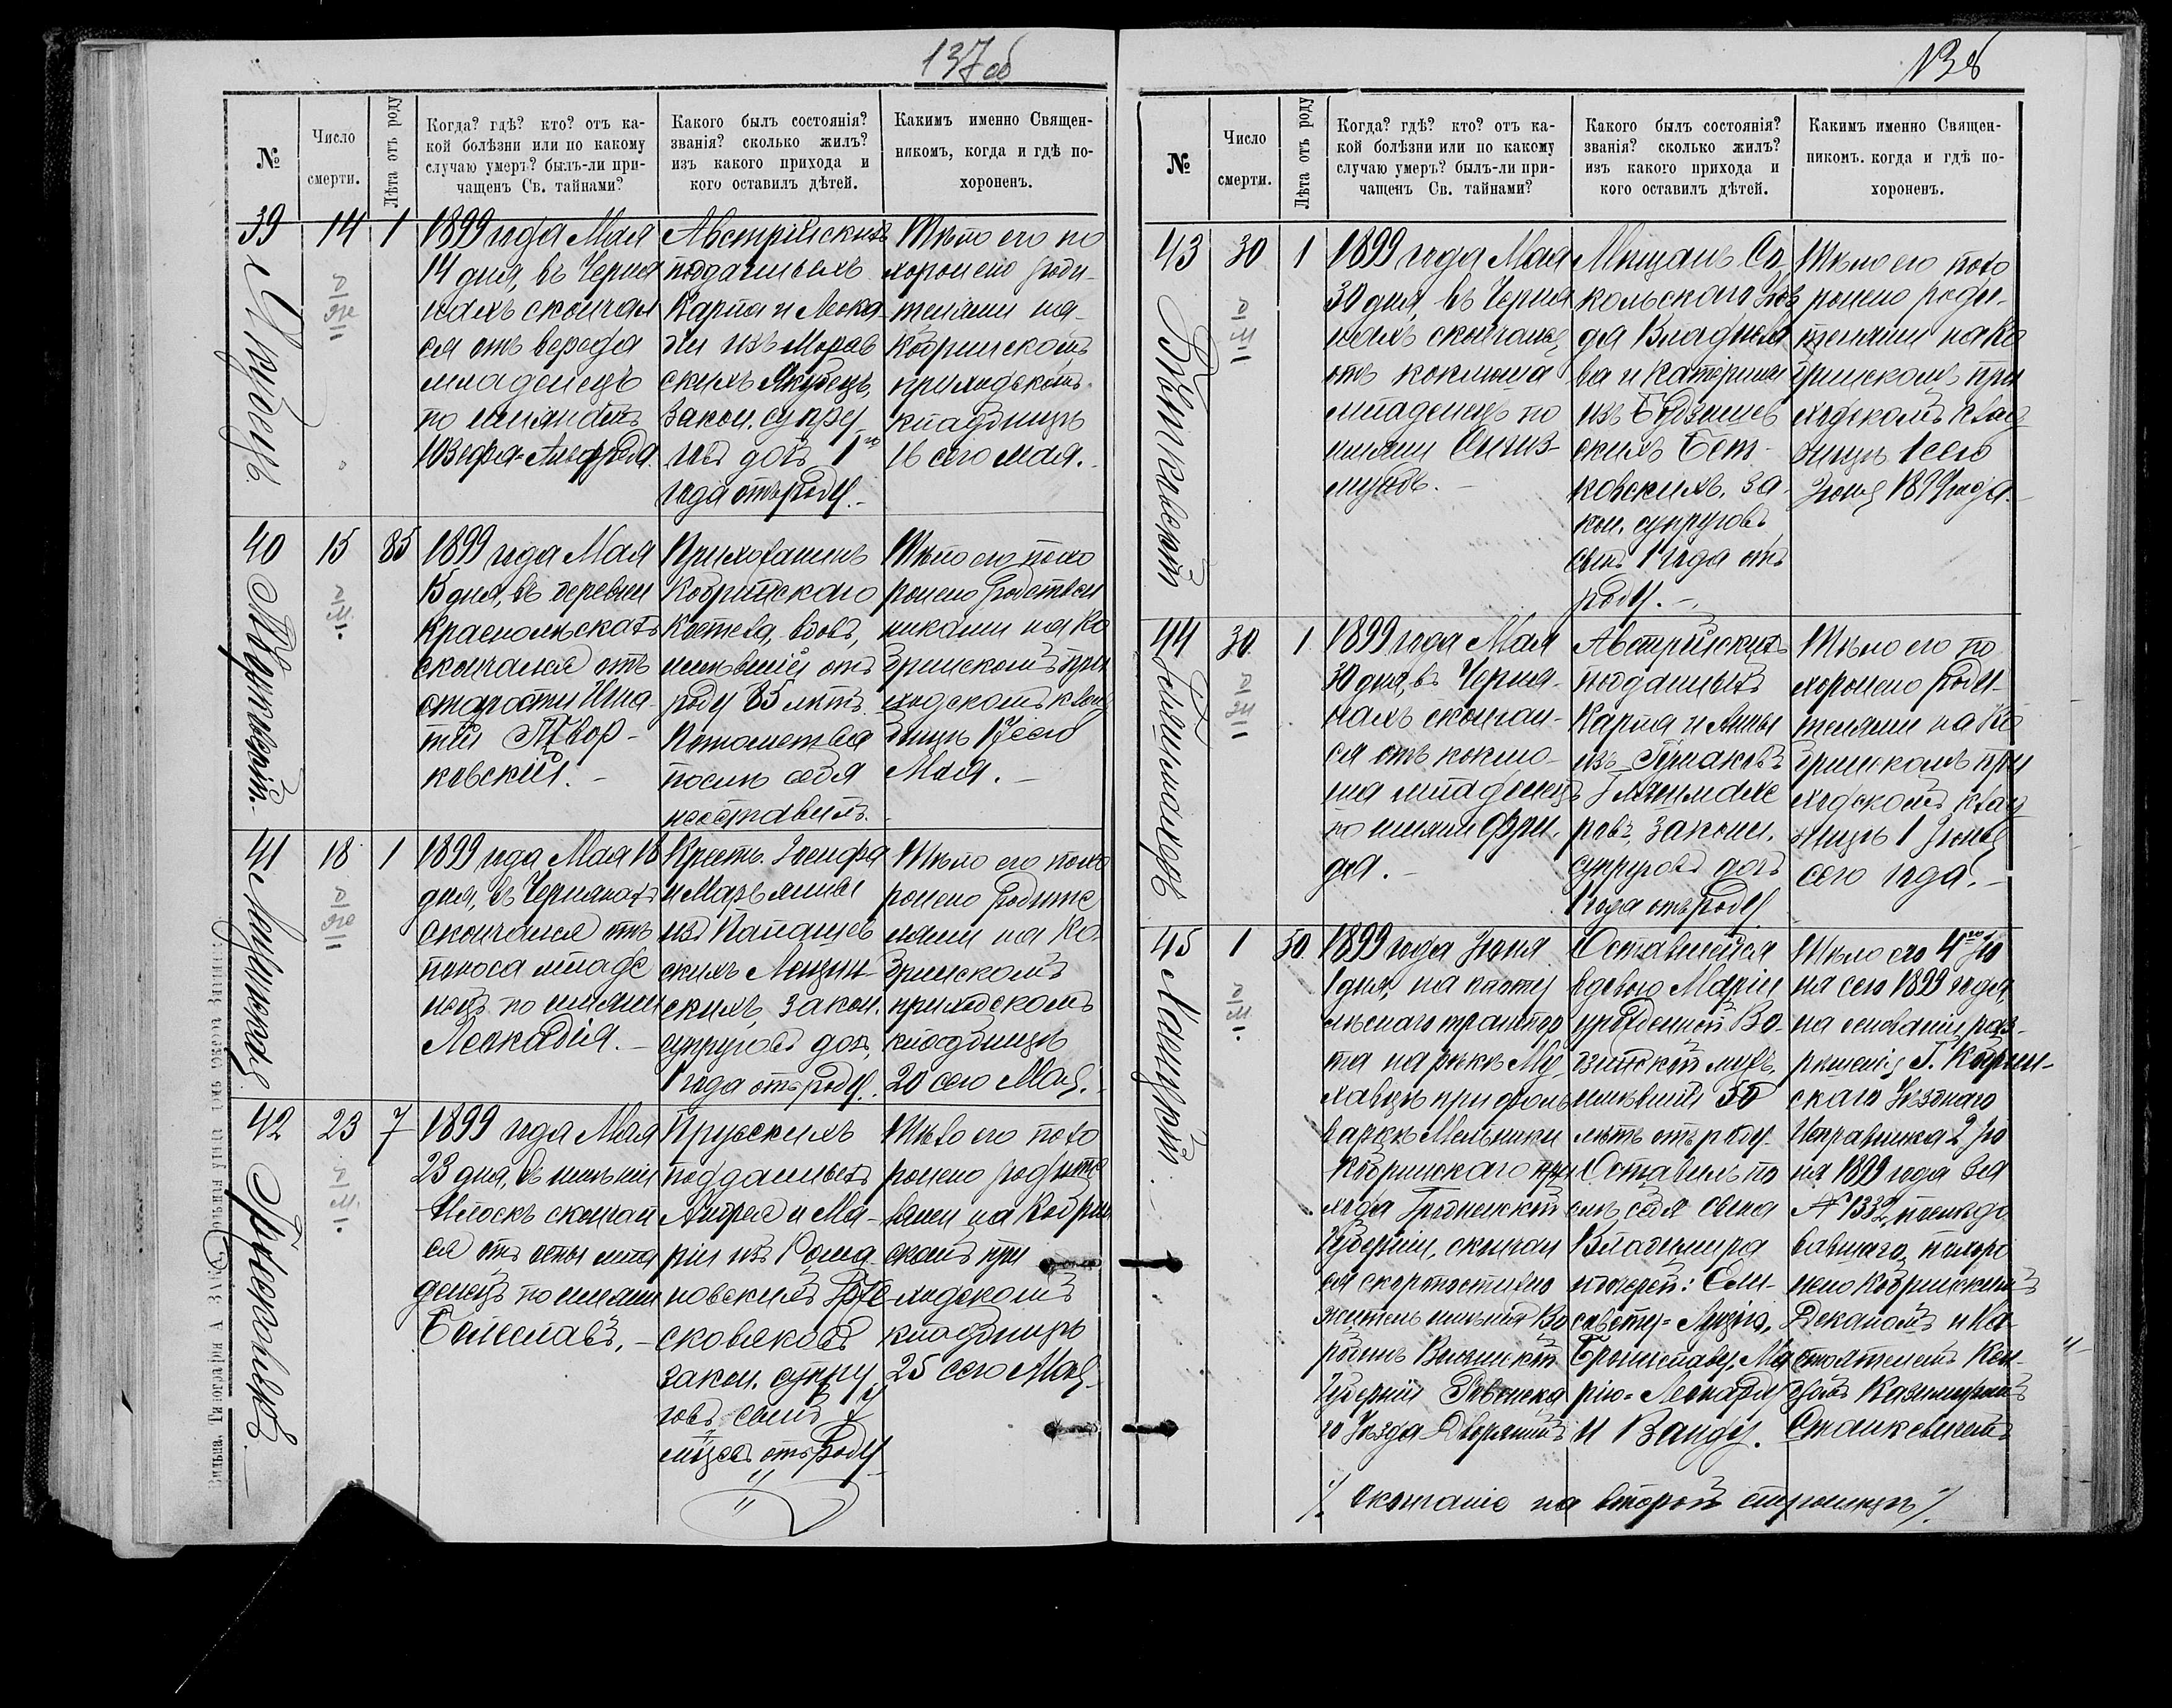 137об
№
Число
смерти.
Лѣта отъ роду
Когда? гдѣ? кто? отъ ка-
кой болѣзни или по какому
случаю умеръ? былъ-ли при-
чащенъ Св. тайнами?
Какого былъ состоянія?
званія? сколько жилъ?
изъ какого прихода и
кого оставилъ дѣтей.
Какимъ именно Священ-
никомъ, когда и гдѣ по-
хороненъ.
39
Якубецъ
14
1
1899 года Мая
14 дня, въ Черня
кахъ скончал
ся отъ вереда
младенецъ
по имянамъ
Юзефа-Альфреда.
Австрійскихъ
подданныхъ
Карла и Леока
діи изъ
скихъ Якубецъ,
закон. супру
говъ дочь 1го
года отъ роду.-
Тѣло его по
хоронено роди-
телями на
Кобринскомъ
приходскомъ
кладбищѣ
16 сего мая.
40
Творковскій.
15
85
1899 года Мая
15 дня, въ деревни
скончался отъ
старости Игна-
тій Твор-
ковскій.-
Прихожанинъ
Кобринскаго
костела, вдовъ,
имѣвшій отъ
роду 85 лѣтъ.
Потомства
послѣ себя
неоставилъ.
Тѣло его похо
ронено родствен
никами на Ко
бринскомъ при
ходскомъ клад
бищѣ 17 сего
Мая.-
41
18
1
1899 года Мая 18
дня, въ Чернякахъ
скончался отъ
поноса младе
нецъ по имяни
Леокадія.-
Крест. Іосифа
и Марьянны
изъ
скихъ
скихъ, закон.
супруговъ дочь,
1 года отъ роду.
Тѣло его похо
ронено родите
лями на Ко-
бринскомъ
приходскомъ
кладбищѣ
20 сего Мая.
42
23
7
1899 года Мая
23 дня, въ имѣніи
скончал
ся отъ оспы мла
денецъ по имяни
Болеславъ,-
Прусскихъ
подданныхъ
Андрея и Ма-
ріи изъ Рома
новскихъ
сковяковъ
закон. супру
говъ сынъ 7
мѣсяц. отъ роду
Тѣло его похо
ронено родите
лями на Кобрин
скомъ при
ходскомъ
кладбищѣ
25 сего Мая.
Вильна, Типографія А.
138
№
Число
смерти.
Лѣта отъ роду
Когда? гдѣ? кто? отъ ка-
кой болѣзни или по какому
случаю умеръ? былъ-ли при-
чащенъ Св. тайнами?
Какого былъ состоянія?
званія? сколько жилъ?
изъ какого прихода и
кого оставилъ дѣтей.
Какимъ именно Священ-
никомъ. когда и гдѣ по-
хороненъ.
43
30
1
1899 года Мая
30 дня, въ Черня
кахъ скончалс
отъ коклюша
младенецъ по
имяни Сигиз-
мундъ.-
Мѣщанъ Со-
кольскаго Уѣз
да Владисла
ва и Катерины
изъ
скихъ
ковскихъ, за-
кон. супруговъ
сынъ 1 года отъ
роду.-
Тѣло его похо
ронено роди-
телями на Ко
бринскомъ при
ходскомъ клад
бищѣ 1 сего
Іюня 1899 года.
44
30
1
1899 года Мая
30 дня, въ Черня-
кахъ скончал-
ся отъ коклю-
ша младенецъ
по имяни Фри-
да.-
Австрійскихъ
подданныхъ
Карла и Анны
изъ
ровъ, законн.
супруговъ дочь
1 года отъ роду
Тѣло его по
хоронено роди-
телями на Ко
бринскомъ при
ходскомъ клад
бищѣ 1 Іюня
сего года.-
45
1
50
1899 года Іюня
1 дня, на плоту
лѣснаго транспор
та на рѣкѣ Му
хавцѣ при фоль
варкѣ Мельники
Кобринскаго при
хода Гродненской
Губерніи, скончал
ся скоропостижно
житель имѣнія Во
Волынской
Губерніи Ровенска
го Уѣзда Дворянинъ
Оставшейся
вдовою Маріи
урожденной Во-
мужъ,
имѣвшій 50
лѣтъ отъ роду.
Оставилъ по
слѣ себя сына
Владиміра
и дочерей: Ели-
савету-Луцію,
Брониславу, Ма
рію-Леокадію
и Ванду.
Тѣло его 4го Ію
на сего 1899 года,
на основаніи раз-
рѣшенія Г. Кобрин-
скаго Уѣзднаго
Исправника 2 Ію
ня 1899 года за
№ 1332, послѣдо
вавшаго, похоро
нено Кобринскимъ
Деканомъ и На-
стоятелемъ Ксен-
дзомъ Казимиромъ
Станкевичемъ
./. окончаніе на второй страницѣ ./.